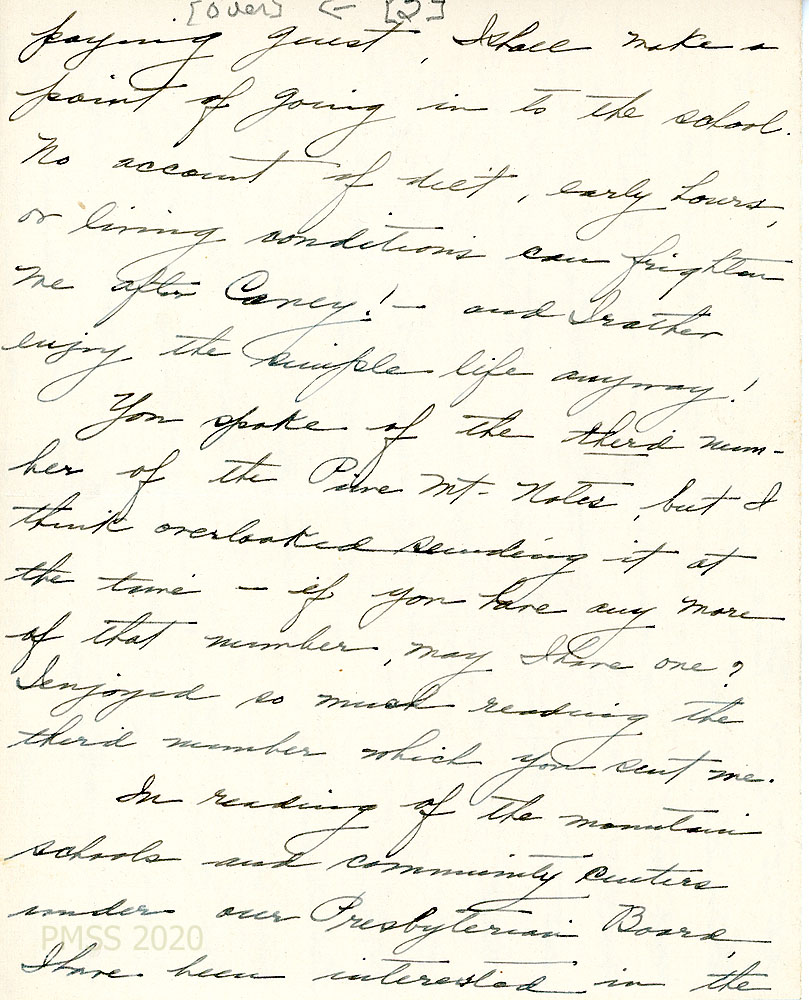 [over] ← [2]
paying guest, I shall make a
point of going in to the school.
No account of diet, early hours,
or living conditions can frighten
me after Caney! — and I rather
enjoy the simple life anyway!
You spoke of the third num-
ber of the Pine Mt. Notes, but I
think overlooked sending it at
the time — if you have any more
of that number, may I have one?
I enjoyed so much reading the
third number which you sent me.
In reading of the mountain
schools and community centers
under our Presbyterian Board,
I have been interested in the
PMSS 2020